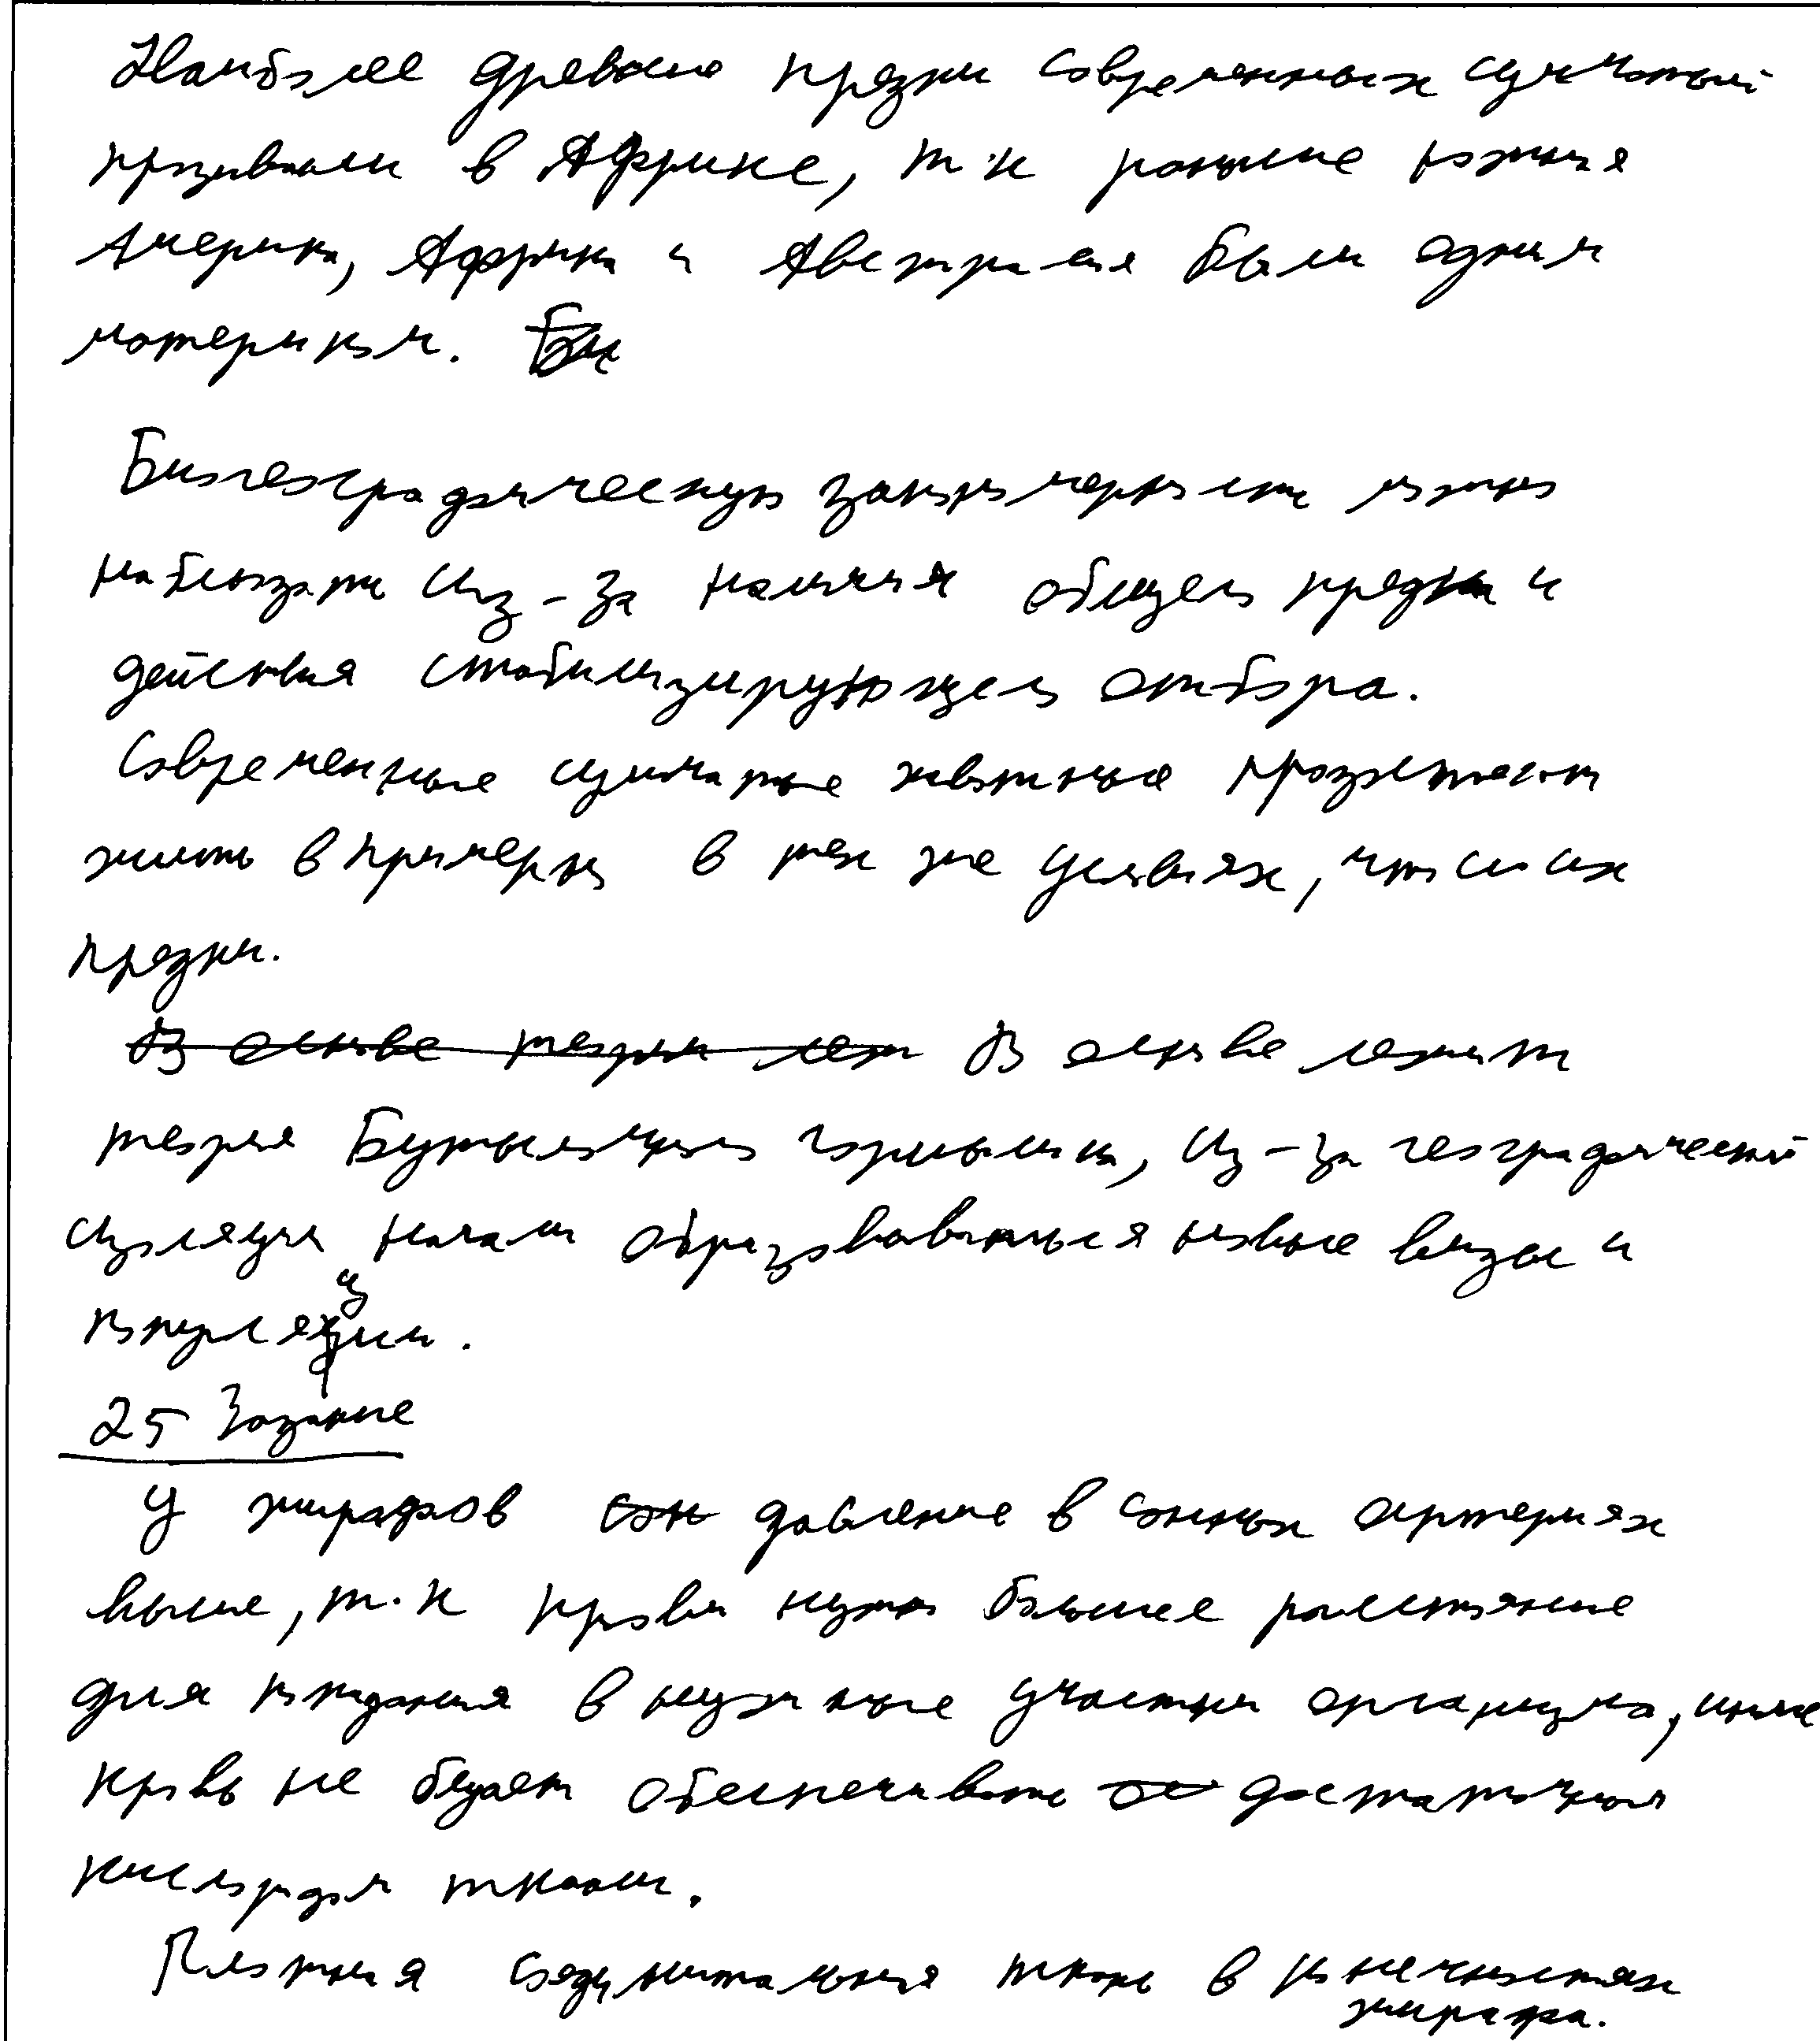 Наиболее древние предки современных сумчатых
проживали в Африке, т.к раньше южная
Америка, Африка и Австралия были одним
материком.
Биогеографическую закономерность можно
наблюдать из-за наличия общего предка и
действия стабилизирующего отбора.
Современные сумчатые животные продолжают
жить в примерно в тех же условиях, что и их
предки.
В основе теории леж В основе лежит
теория Бутылочного горлышка, из-за географической
изоляции начали образовываться новые виды и
популяции.
25 Задание
У жирафов сон давление в сонных артериях
выше, т.к крови нужно большее расстояние
для попадания в нужные участки организма, иначе
кровь не будет обеспечивать достаточным
кислородом ткани.
Плотная соединительная ткань в конечностях
жирафа.